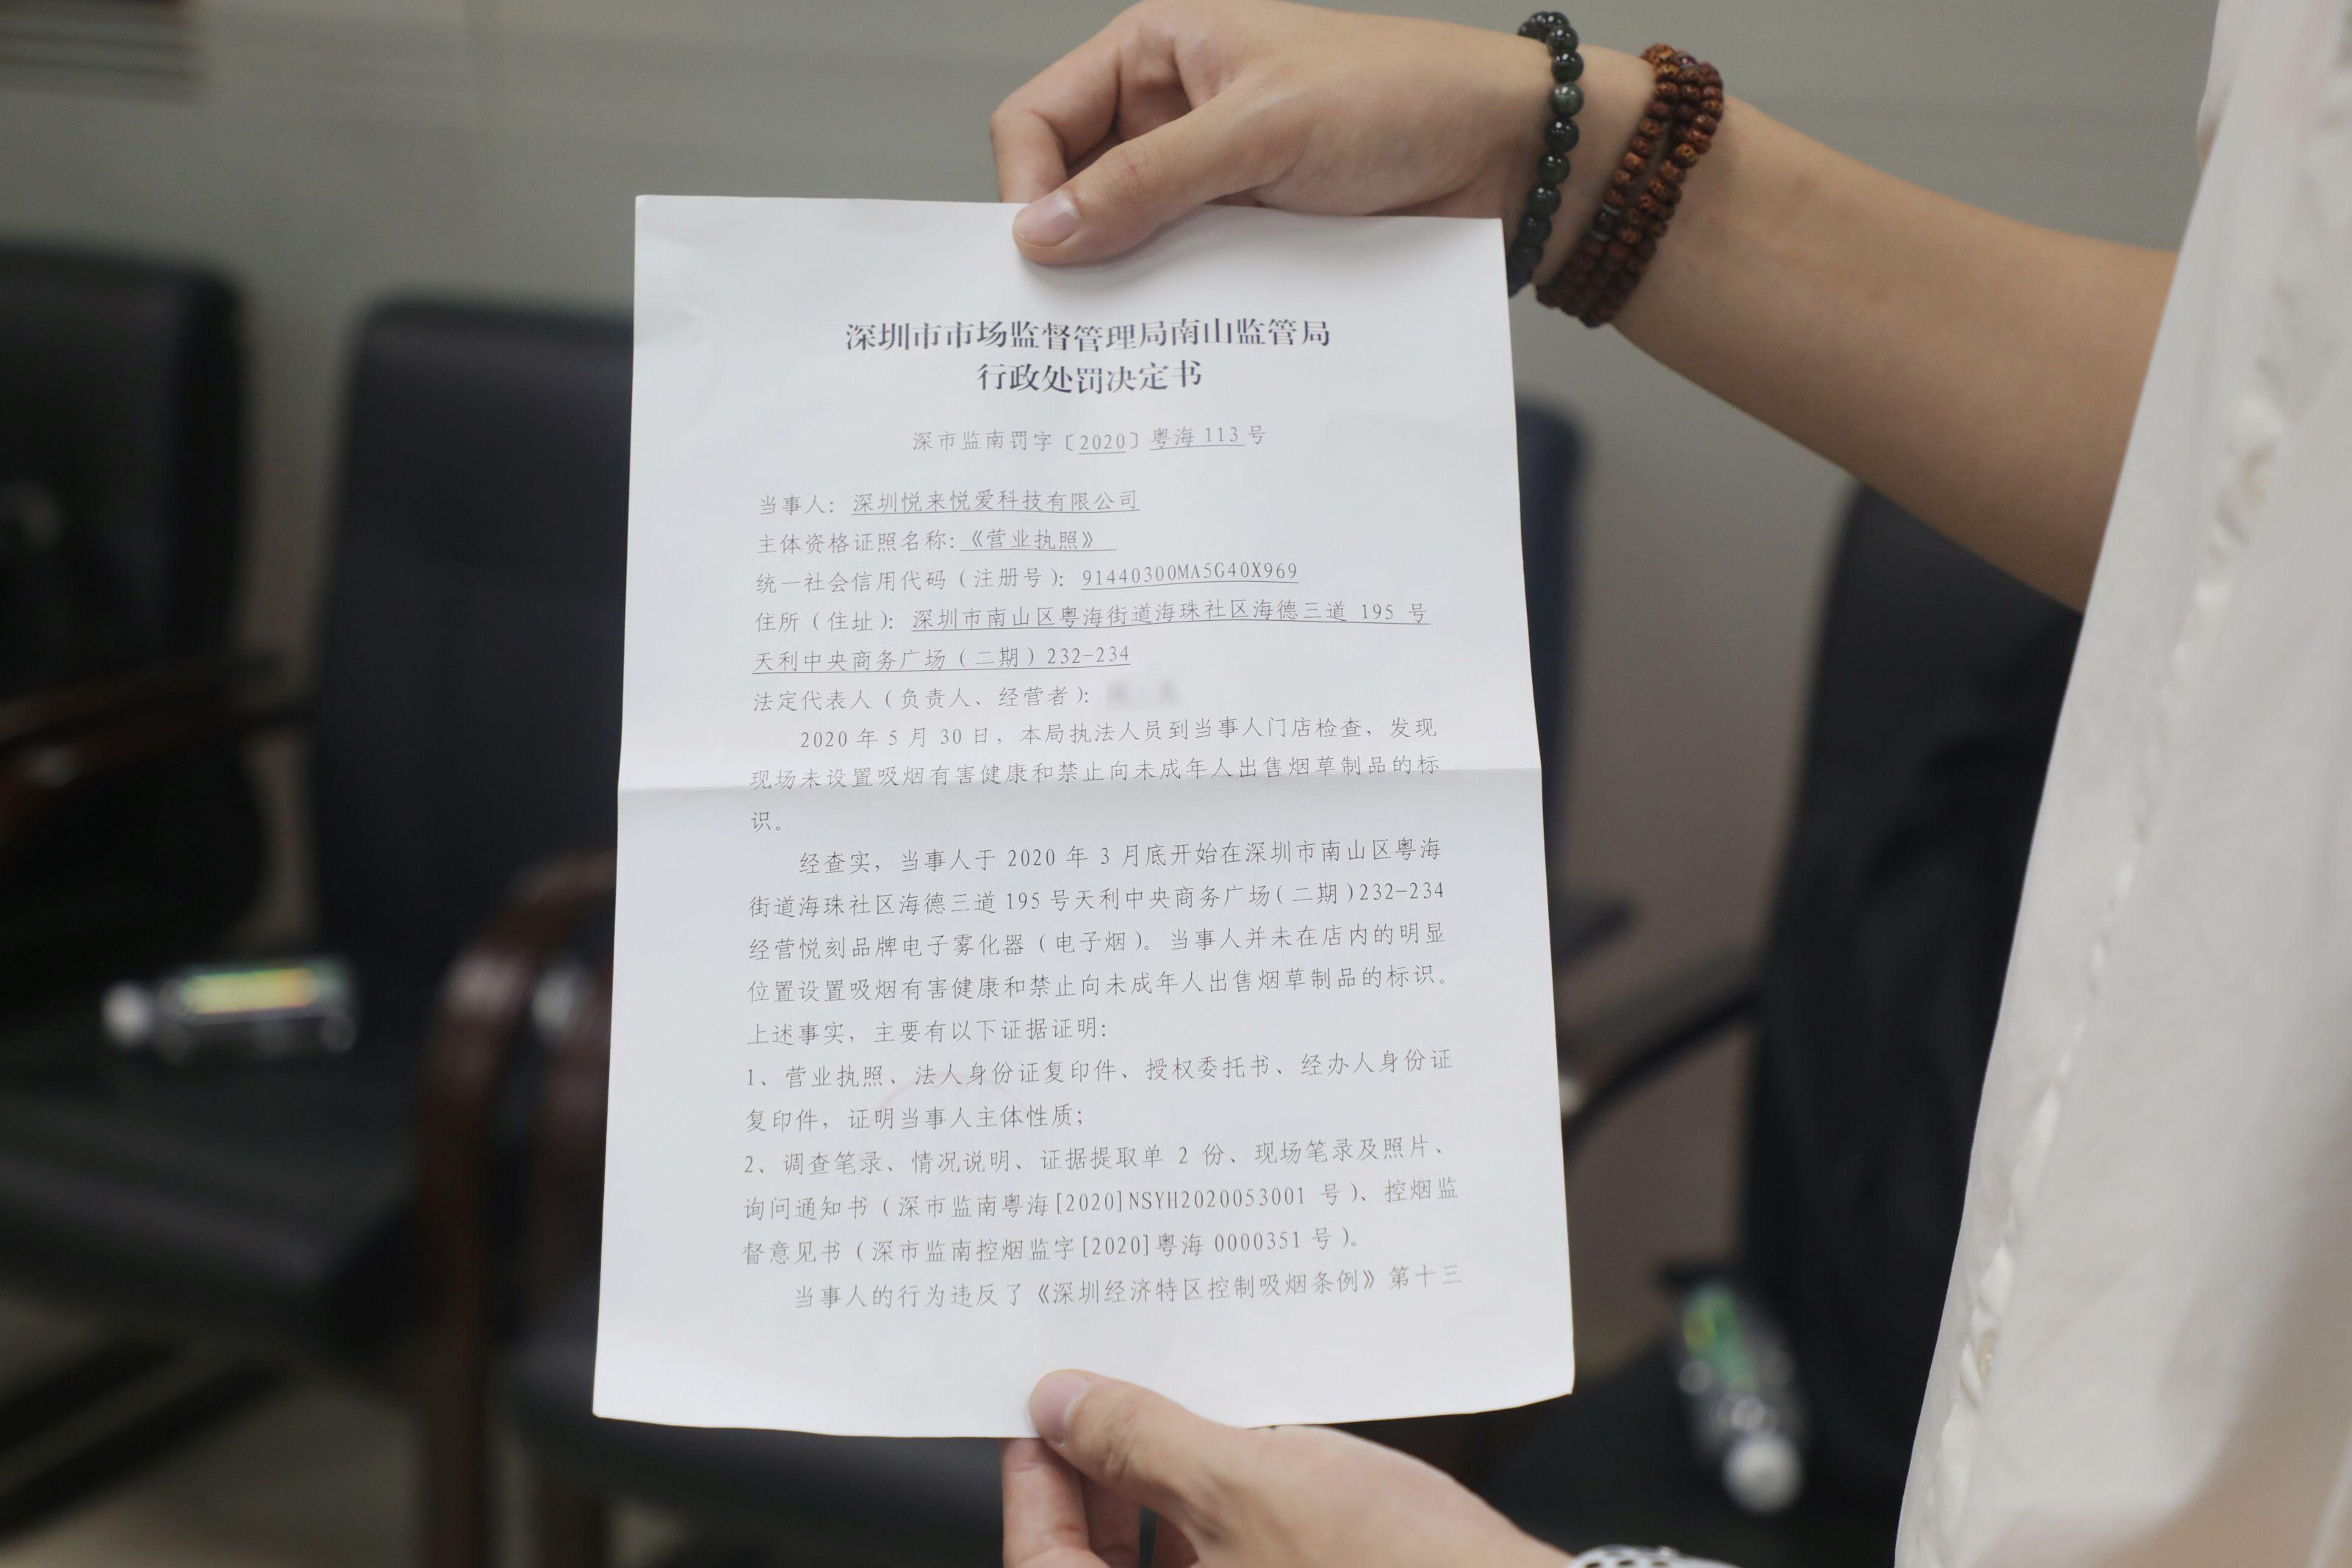 深圳市市场监督管理局南山监管局
行政处罚决定书
深市监南罚字〔2020〕粤海 113 号
当事人：深圳悦来悦爱科技有限公司
主体资格证照名称：《营业执照》
统一社会信用代码（注册号）：91440300MA5G40X969
住所（住址）：深圳市南山区粤海街道海珠社区海德三道 195 号
天利中央商务广场（二期）232-234
法定代表人（负责人、经营者）：
2020 年 5 月 30 日，本局执法人员到当事人门店检查，发现
现场未设置吸烟有害健康和禁止向未成年人出售烟草制品的标
识。
经查实，当事人于 2020 年 3 月底开始在深圳市南山区粤海
街道海珠社区海德三道 195 号天利中央商务广场（二期）232-234
经营悦刻品牌电子雾化器（电子烟）。当事人并未在店内的明显
位置设置吸烟有害健康和禁止向未成年人出售烟草制品的标识。
上述事实，主要有以下证据证明：
1、营业执照、法人身份证复印件、授权委托书、经办人身份证
复印件，证明当事人主体性质；
2、调查笔录、情况说明、证据提取单 2 份、现场笔录及照片、
询问通知书（深市监南粤海[2020]NSYH2020053001 号）、控烟监
督意见书（深市监南控烟监字[2020]粤海 0000351 号）。
当事人的行为违反了《深圳经济特区控制吸烟条例》第十三